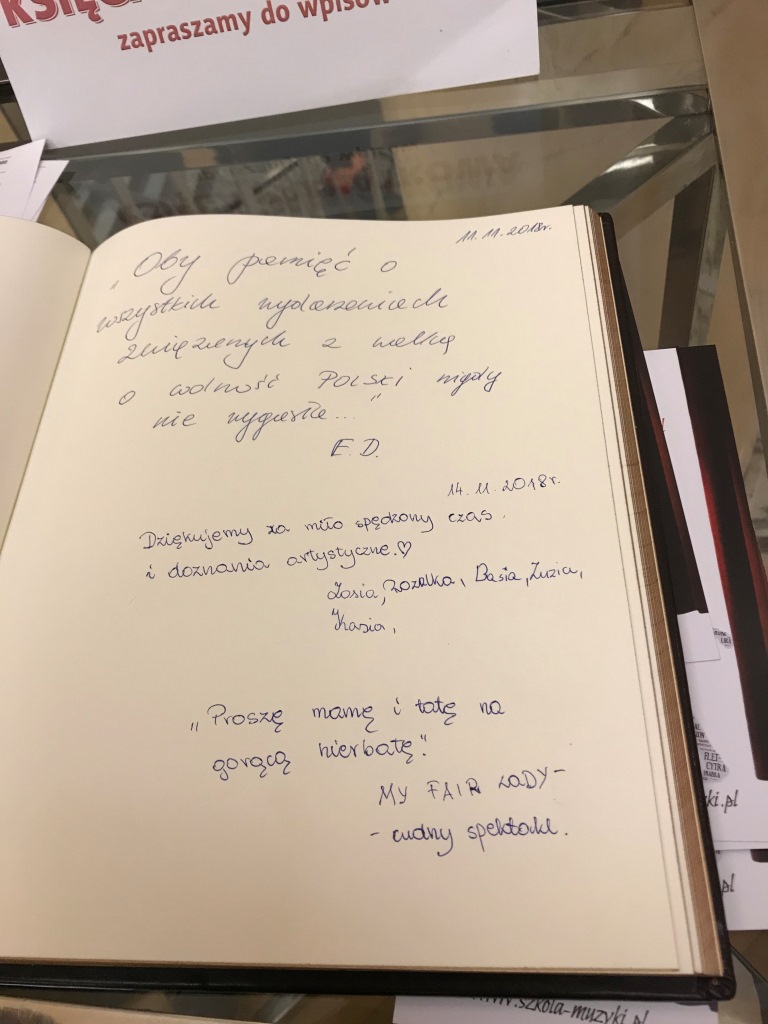 zapraszamy do wpisów
11.11.2018r.
„Oby pamięć o
wszystkich wydarzeniach
związanych z walką
o wolność POLSKI nigdy
nie wygasła..."
E.D.
14.11.2018r.
Dziękujemy za miło spędzony czas.
i doznania artystyczne.♡
Zosia, Rozalka, Basia, Zuzia,
Kasia,
„Proszę mamę i tatę na
gorącą herbatę."
MY FAIR LADY-
- cudny spektakl.
ki.pl
pl
www.szkola-muzyki.pl